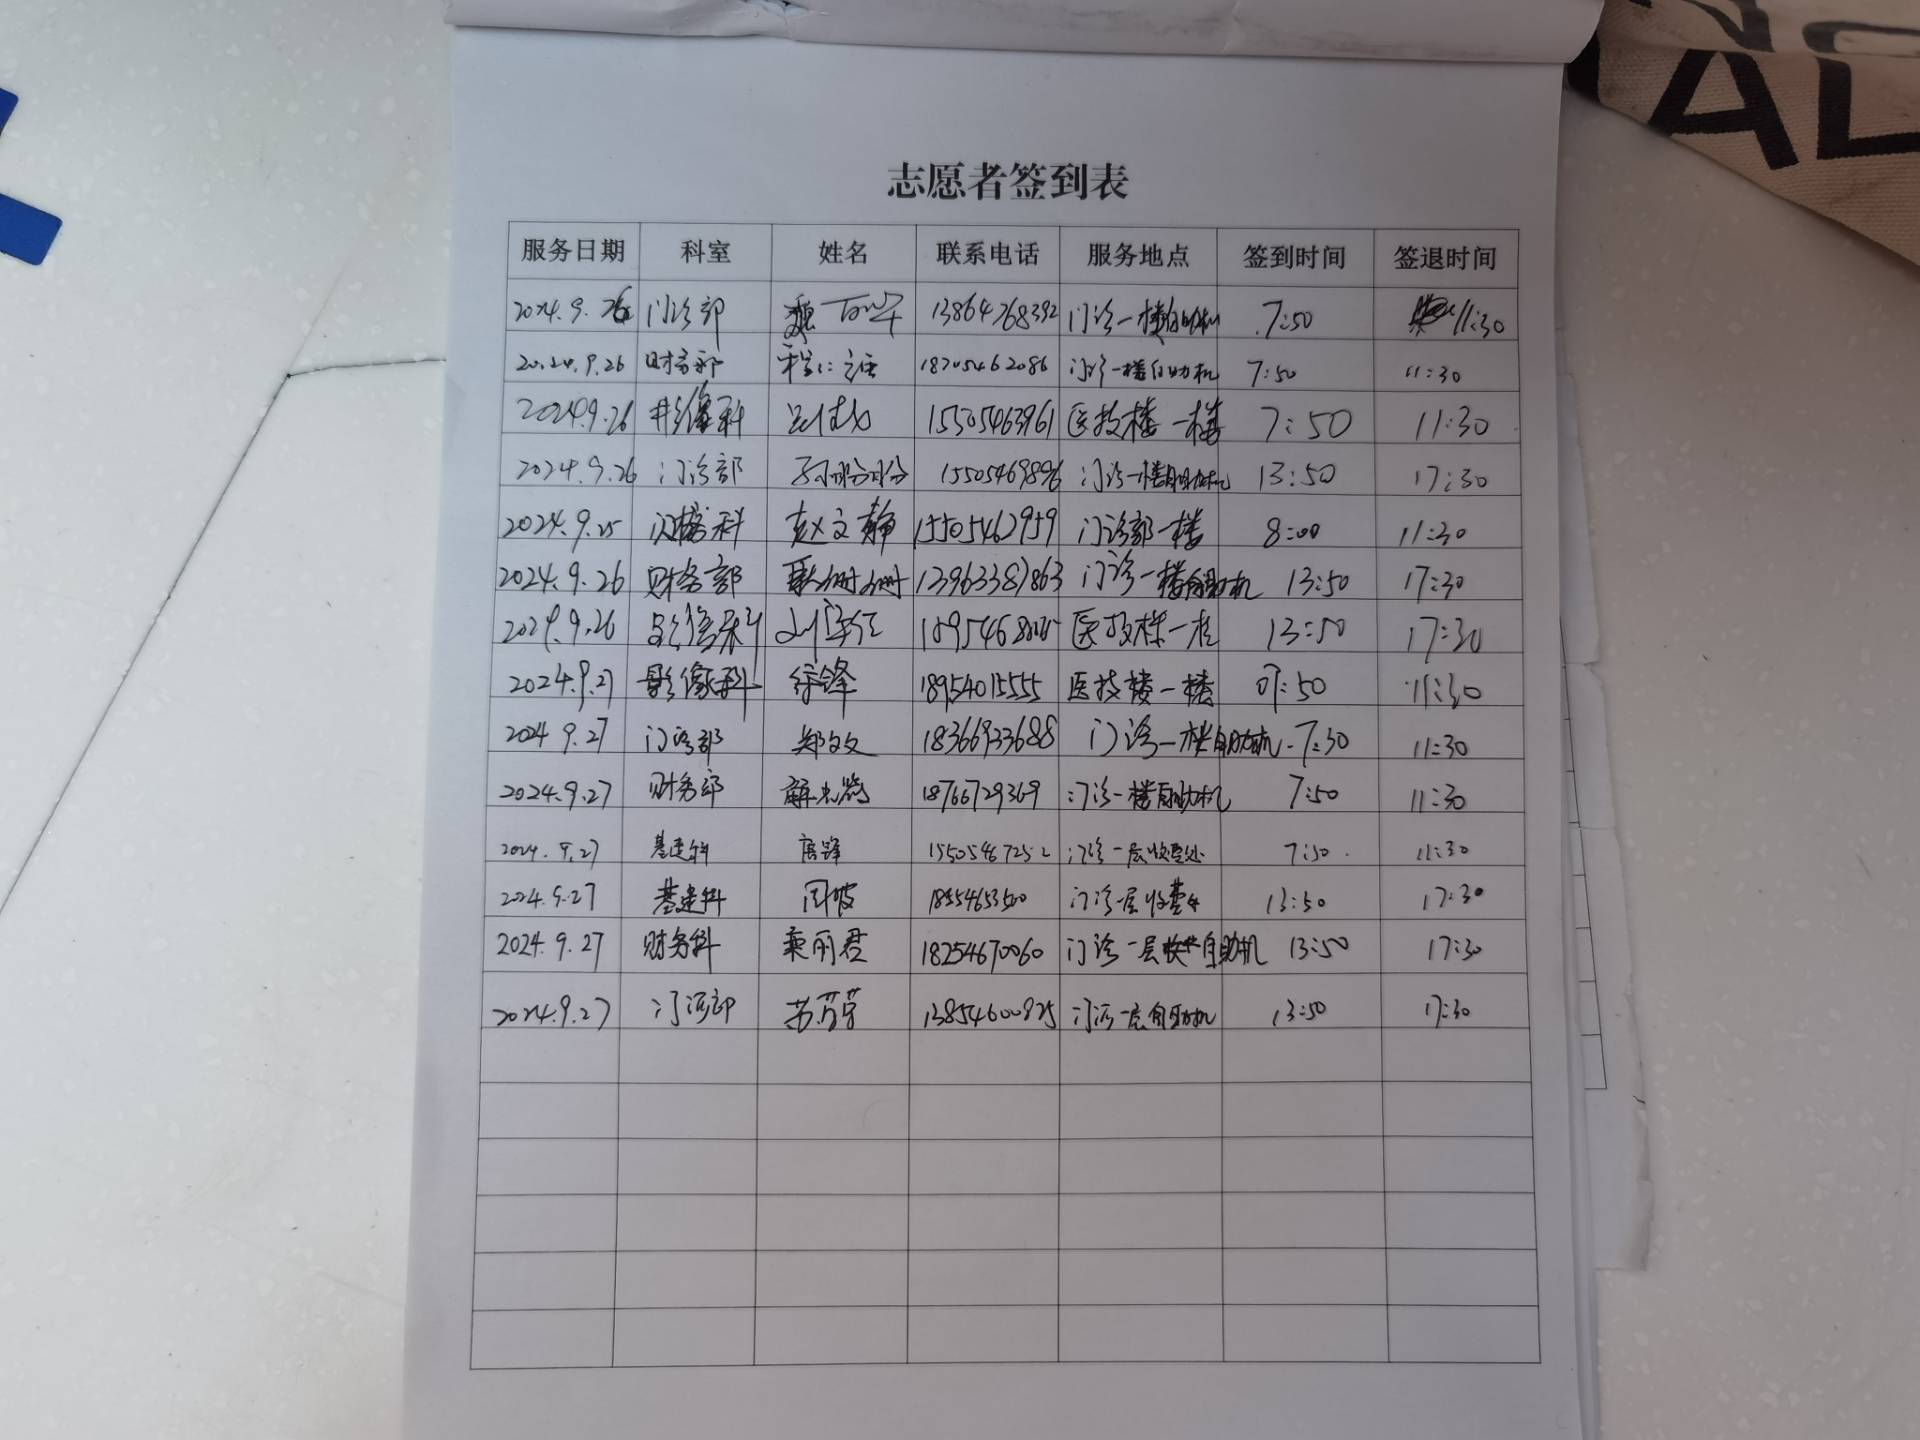 志愿者签到表
服务日期 科室 姓名 联系电话 服务地点 签到时间 签退时间
2024.9.26 门诊部 魏 13864768392 门诊一楼自助机 7:50 11:30
2024.9.26 财务部 18705462086 门诊一楼自助机 7:50 11:30
2024.9.26 影像科 15505463961 医技楼一楼 7:50 11:30
2024.9.26 门诊部 孙盼盼 15505469896 门诊一楼自助机 13:50 17:30
2024.9.25 赵文静 15505462959 门诊部一楼 8:00 11:30
2024.9.26 财务部 13963387863 门诊一楼自助机 13:50 17:30
2024.9.26 影像科 医技楼一楼 13:50 17:30
2024.9.27 影像科 徐锋 18954015555 医技楼一楼 07:50 11:30
2024 9.27 门诊部 郑文文 18366933688 门诊一楼自助机 7:30 11:30
2024.9.27 财务部 18766729369 门诊一楼自助机 7:50 11:30
2024.9.27 基建科 唐锋 门诊一层收费处 7:50 11:30
2024.9.27 基建科 周波 门诊一层收费处 13:50 17:30
2024.9.27 财务科 栾丽君 18254670060 门诊一层 自助机 13:50 17:30
2024.9.27 门诊部 苏芳芳 13854600825 门诊一层自助机 13:50 17:30
AL